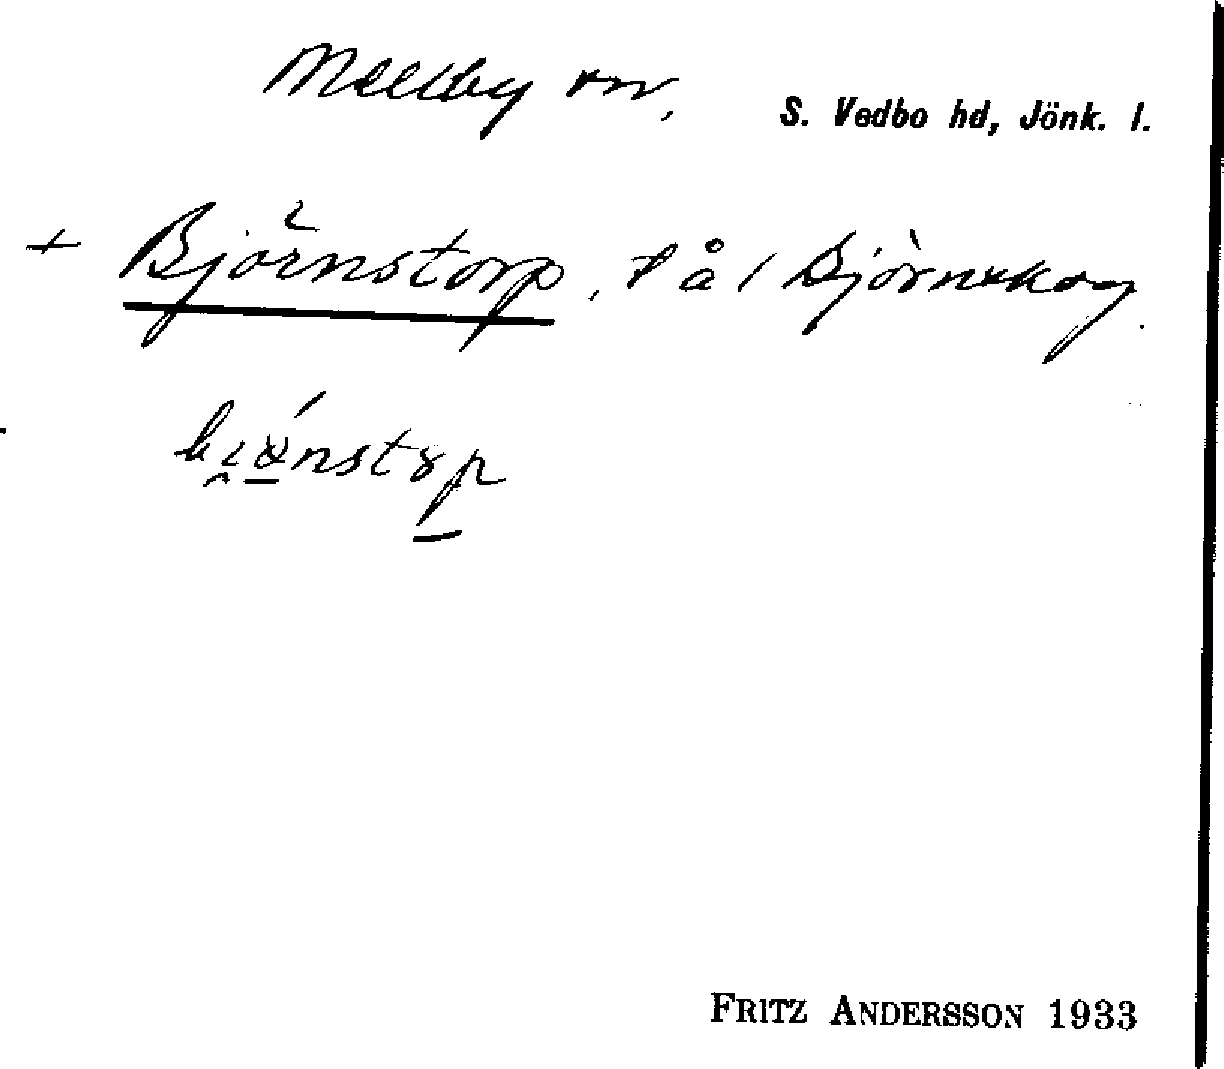 Mellby sn, S. Vedbo hd, Jönk. l.
+ Björnstorp, t å / Björnskog.
FRITZ ANDERSSON 1933